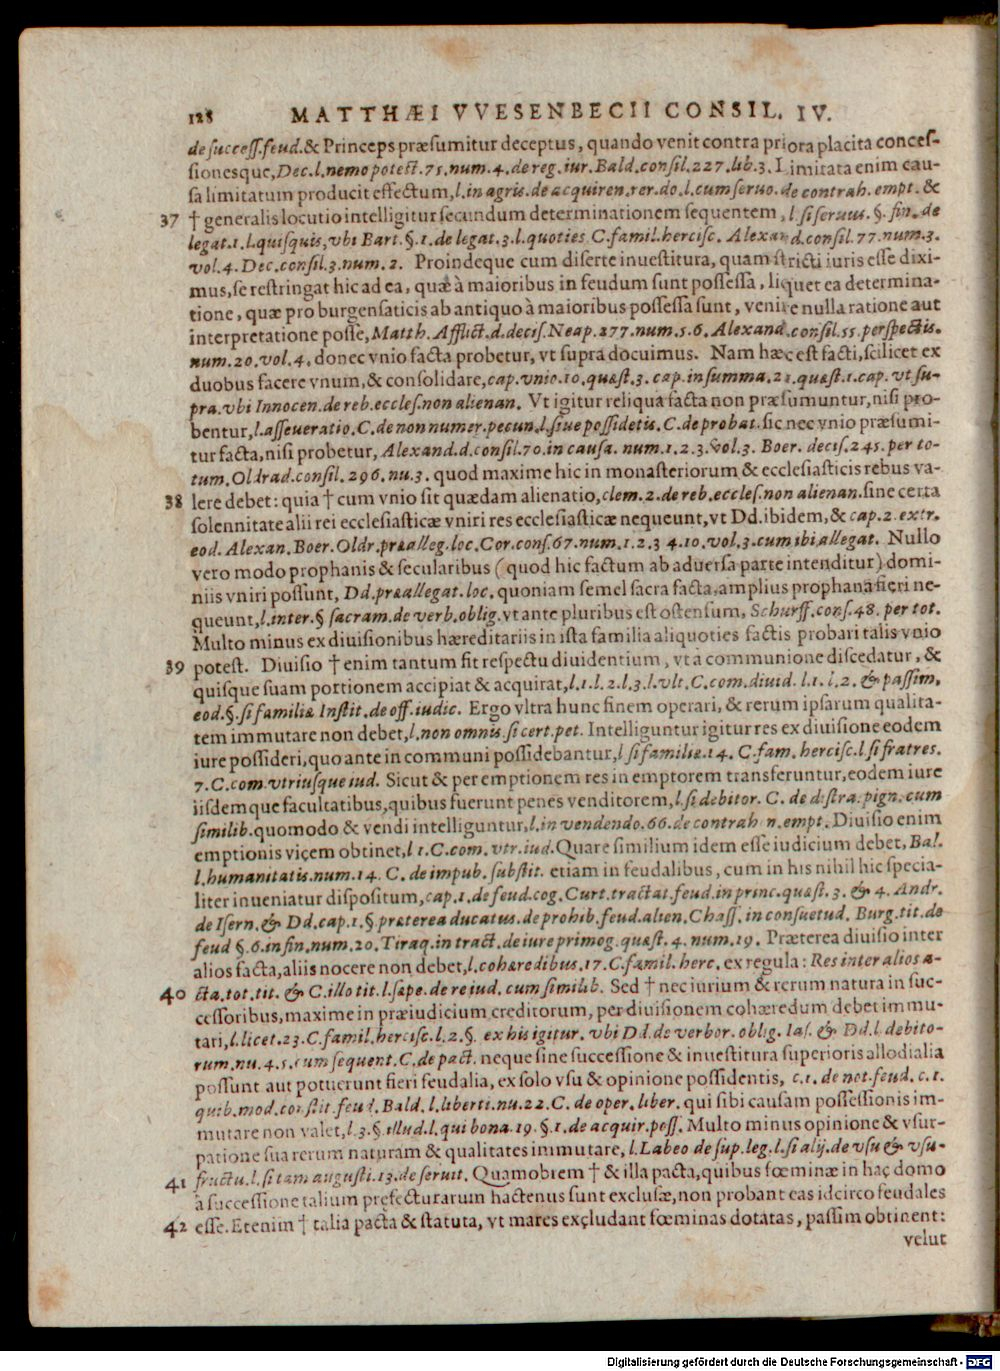 128 MATTHÆI VVESENBECII CONSIL. IV.
de success. feud. & Princeps præsumitur deceptus, quando venit contra priora placita conces-
sionesque, Dec. l. nemo potest. 75. num. 4. de reg. iur. Bald. consil. 227. lib. 3. Limitata enim cau-
sa limitatum producit effectum, l. in agris. de acquiren. rer. do. l. cum seruo. de contrah. empt. &
37 † generalis locutio intelligitur secundum determinationem sequentem, l. si seruus. §. fin. de
legat. 1. l. quisquis, vbi Bart. §. 1. de legat. 3. l. quoties C. famil. hercisc. Alexand. consil. 77. num. 3.
vol. 4. Dec. consil. 3. num. 2. Proindeque cum diserte inuestitura, quam stricti iuris esse dixi-
mus, se restringat hic ad ea, quæ à maioribus in feudum sunt possessa, liquet ea determina-
tione, quæ pro burgensaticis ab antiquo à maioribus possessa sunt, venire nulla ratione aut
interpretatione posse, Matth. Afflict. d. decis. Neap. 277. num. 5. 6. Alexand. consil. 55. perspectis.
num. 20. vol. 4. donec vnio facta probetur, vt supra docuimus. Nam hæc est facti, scilicet ex
duobus facere vnum, & consolidare, cap. vnio. 10. quæst. 3. cap. in summa. 21. quæst. 1. cap. vt su-
pra. vbi Innocen. de reb. eccles. non alienan. Vt igitur reliqua facta non præsumuntur, nisi pro-
bentur, l. asseueratio. C. de non numer. pecun. l. siue possidetis. C. de probat. sic nec vnio præsumi-
tur facta, nisi probetur, Alexand. d. consil. 70. in causa. num. 1. 2. 3. vol. 3. Boer. decis. 245. per to-
tum, Oldrad. consil. 296. nu. 3. quod maxime hic in monasteriorum & ecclesiasticis rebus va-
38 lere debet: quia † cum vnio sit quædam alienatio, clem. 2. de reb. eccles. non alienan. sine certa
solennitate alii rei ecclesiasticæ vniri res ecclesiasticæ nequeunt, vt Dd. ibidem, & cap. 2. extr.
eod. Alexan. Boer. Oldr. præalleg. loc. Cor. cons. 67. num. 1. 2. 3 4. 10. vol. 3. cum ibi allegat. Nullo
vero modo prophanis & secularibus (quod hic factum ab aduersa parte intenditur) domi-
niis vniri possunt, Dd. præallegat. loc. quoniam semel sacra facta, amplius prophana fieri ne-
queunt, l. inter. § sacram. de verb. oblig. vt ante pluribus est ostensum, Schurff. cons. 48. per tot.
Multo minus ex diuisionibus hæreditariis in ista familia aliquoties factis probari talis vnio
39 potest. Diuisio † enim tantum fit respectu diuidentium, vt à communione discedatur, &
quisque suam portionem accipiat & acquirat, l. 1. l. 2. l. 3. l. vlt. C. com. diuid. l. 1. l. 2. & passim,
eod. §. si familiæ Instit. de off. iudic. Ergo vltra hunc finem operari, & rerum ipsarum qualita-
tem immutare non debet, l. non omnis. si cert. pet. Intelliguntur igitur res ex diuisione eodem
iure possideri, quo ante in communi possidebantur, l si familiæ. 14. C. fam. hercisc. l. si fratres.
7. C. com. vtriusque iud. Sicut & per emptionem res in emptorem transferuntur, eodem iure
iisdemque facultatibus, quibus fuerunt penes venditorem, l. si debitor. C. de distra. pign. cum
similib. quomodo & vendi intelliguntur, l. in vendendo. 66. de contrah n. empt. Diuisio enim
emptionis vicem obtinet, l 1. C. com. vtr. iud. Quare similium idem esse iudicium debet, Bal.
l. humanitatis. num. 14. C. de impub. substit. etiam in feudalibus, cum in his nihil hic specia-
liter inueniatur dispositum, cap. 1. de feud. cog. Curt. tractat. feud. in princ. quæst. 3. & 4. Andr.
de Isern. & Dd. cap. 1. § præterea ducatus. de prohib. feud. alien. Chass. in consuetud. Burg. tit. de
feud §. 6. in fin. num. 20. Tiraq. in tract. de iure primog. quæst. 4. num. 19. Præterea diuisio inter
alios facta, aliis nocere non debet, l. cohæredibus. 17. C. famil. herc. ex regula: Res inter alios a-
40 cta. tot. tit. & C. illo tit. l. sæpe. de re iud. cum similib. Sed † nec iurium & rerum natura in suc-
cessoribus, maxime in præiudicium creditorum, per diuisionem cohæredum debet immu-
tari, l. licet. 23. C. famil. hercisc. l. 2. §. ex his igitur. vbi Dd. de verbor. oblig. Ias. & Dd. l. debito-
rum. nu. 4. 5. cum sequent. C. de pact. neque sine successione & inuestitura superioris allodialia
possunt aut potuerunt fieri feudalia, ex solo vsu & opinione possidentis, c. 1. de not. feud. c. 1.
quib. mod. constit. feud. Bald. l. liberti. nu. 22. C. de oper. liber. qui sibi causam possessionis im-
mutare non valet, l. 3. § illud. l. qui bona. 19. §. 1. de acquir. poss. Multo minus opinione & vsur-
patione sua rerum naturam & qualitates immutare, l. Labeo de sup. leg. l. si alij. de vsu & vsu-
41 fructu. l. si tam augusti. 13. de seruit. Quamobrem † & illa pacta, quibus fœminæ in hac domo
à successione talium præfecturarum hactenus sunt exclusæ, non probant eas idcirco feudales
42 esse. Etenim † talia pacta & statuta, vt mares excludant fœminas dotatas, passim obtinent:
velut
Digitalisierung gefördert durch die Deutsche Forschungsgemeinschaft - DFG